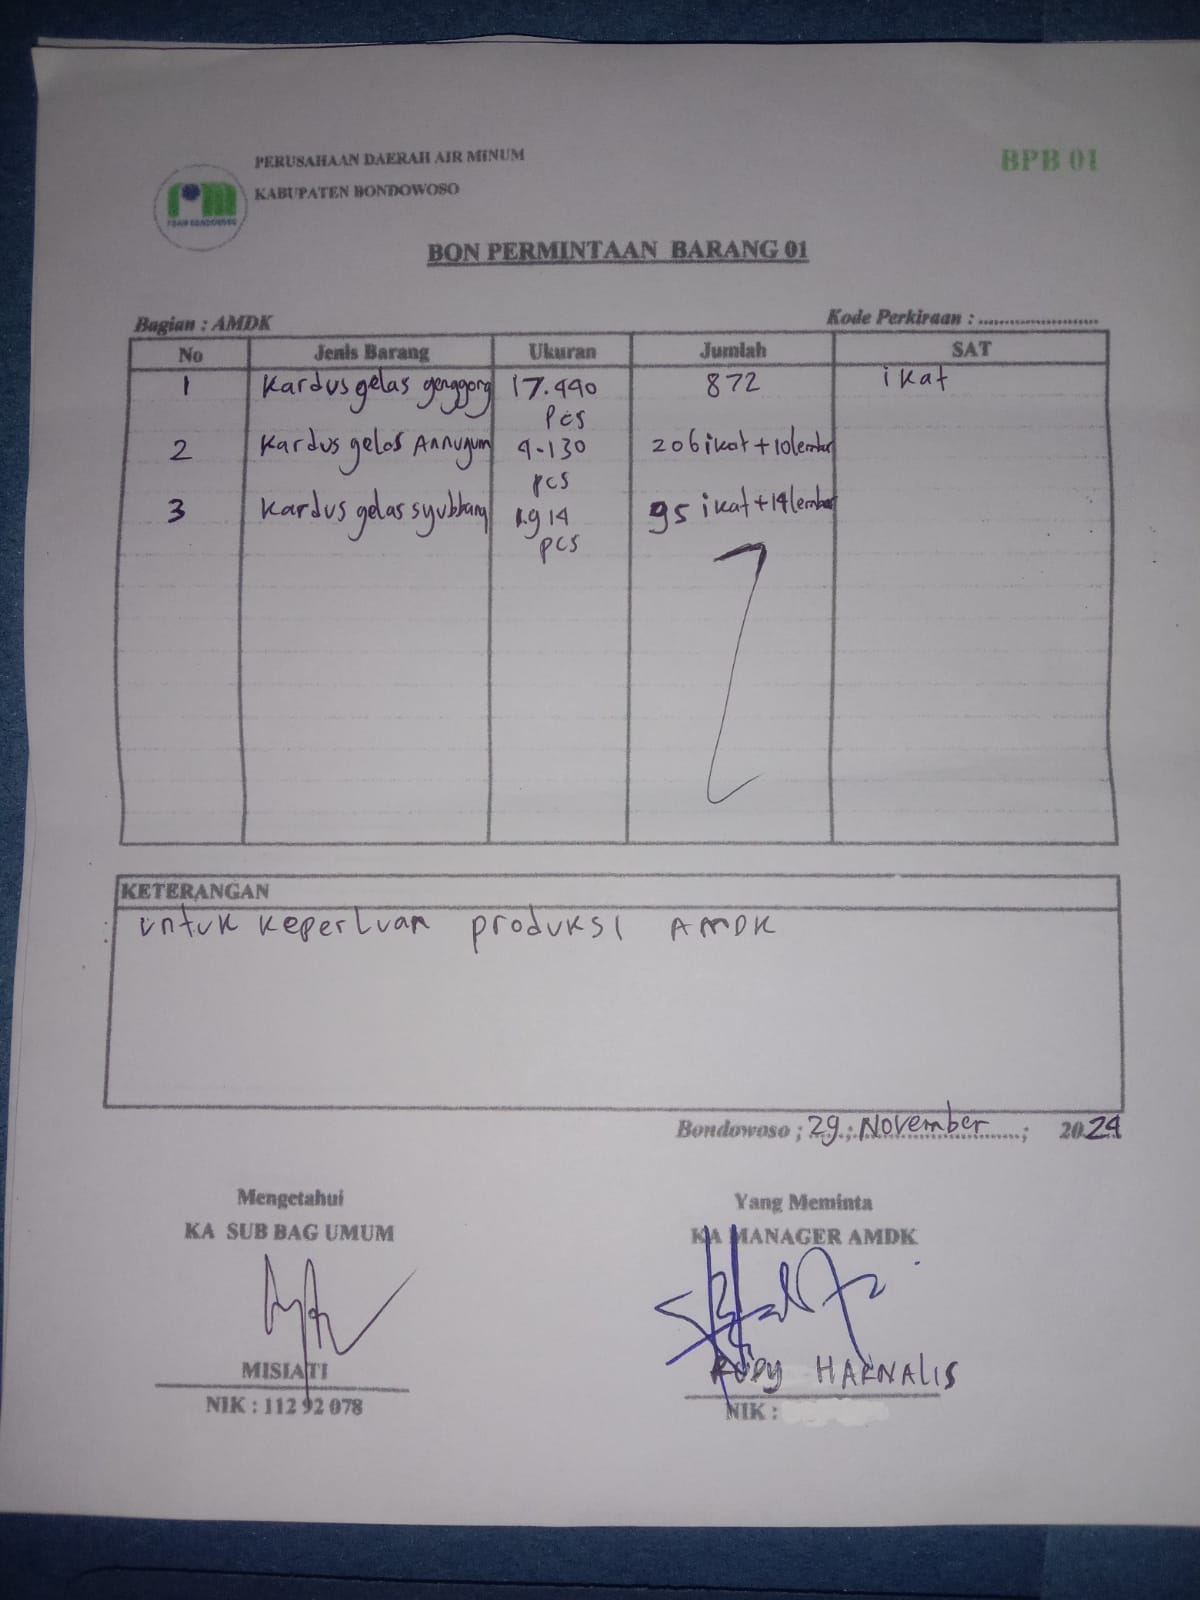 PERUSAHAAN DAERAH AIR MINUM
KABUPATEN BONDOWOSO
BPB 01
PDAM BONDOWOSO
BON PERMINTAAN BARANG 01
Bagian : AMDK
Kode Perkiraan : ........................
No Jenis Barang Ukuran Jumlah SAT
1 Kardus gelas genggong 17.440 pcs 872 ikat
2 Kardus gelas Annuqum 4.130 pcs 206 ikat + 10 lembar
3 Kardus gelas syubbang 1.914 pcs 95 ikat + 14 lembar
KETERANGAN
: untuk keperluan produksi AMDK
Bondowoso ; 29 ; November ; 2024
Mengetahui
KA SUB BAG UMUM
MISIATI
NIK : 112 92 078
Yang Meminta
KA MANAGER AMDK
RUDY HARNALIS
NIK :